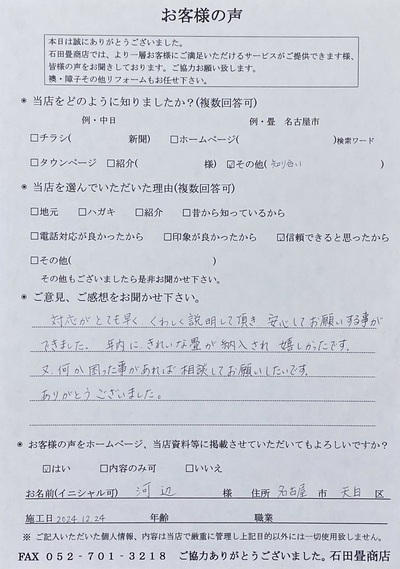 お客様の声
本日は誠にありがとうございました。
石田畳商店では、より一層お客様にご満足いただけるサービスがご提供できます様、
皆様の声をお聞きしております。ご協力お願い致します。
襖・障子その他リフォームもお任せ下さい。
◉ 当店をどのように知りましたか?(複数回答可)
例・中日 例・畳 名古屋市
☐チラシ( 新聞) ☐ホームページ( )検索ワード
☐タウンページ ☐紹介( 様) ☑その他( 知り合い )
◉ 当店を選んでいただいた理由(複数回答可)
☐地元 ☐ハガキ ☐紹介 ☐昔から知っているから
☐電話対応が良かったから ☐印象が良かったから ☑信頼できると思ったから
☐その他( )
その他もございましたら是非お聞かせ下さい。
◉ ご意見、ご感想をお聞かせ下さい。
対応がとても早く くわしく説明して頂き 安心してお願いする事が
できました。 年内に きれいな畳が納入され 嬉しかったです。
又 何か困った事があれば 相談してお願いしたいです。
ありがとうございました。
◉ お客様の声をホームページ、当店資料等に掲載させていただいてもよろしいですか?
☑はい ☐内容のみ可 ☐いいえ
お名前(イニシャル可) 河辺 様 住所 名古屋 市 天白 区
施工日 2024.12.24 年齢 職業
※ ご記入いただいた個人情報、内容は当店で厳重に管理し上記目的以外には一切使用致しません。
FAX 052-701-3218 ご協力ありがとうございました。石田畳商店